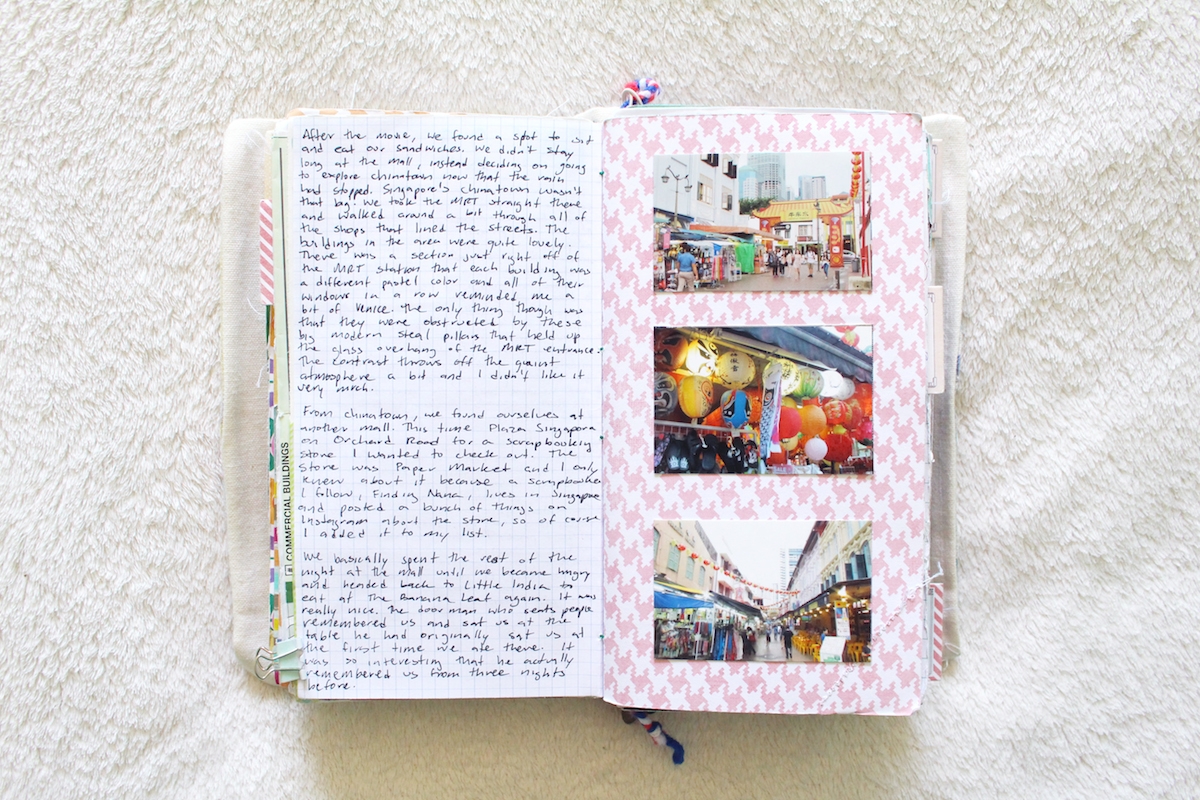 After the movie, we found a spot to sit
and eat our sandwiches. We didn't stay
long at the mall, instead deciding on going
to explore chinatown now that the rain
had stopped. Singapore's chinatown wasn't
that big. We took the MRT straight there
and walked around a bit through all of
the shops that lined the streets. The
buildings in the area were quite lovely.
There was a section just right off of
the MRT station that each building was
a different pastel color and all of their
windows in a row reminded me a
bit of Venice. The only thing though was
that they were obstructed by these
big modern steal pillars that held up
the glass overhang of the MRT entrance.
The contrast throws off the quaint
atmosphere a bit and I didn't like it
very much.
From chinatown, we found ourselves at
another mall. This time Plaza Singapora
on Orchard Road for a scrapbooking
store I wanted to check out. The
store was Paper Market and I only
knew about it because a scrapbooker
I follow, Finding Nana, lives in Singapore
and posted a bunch of things on
Instagram about the store, so of course
I added it to my list.
We basically spent the rest of the
night at the mall until we became hungry
and headed back to Little India to
eat at the Banana Leaf again. It was
really nice. The door man who seats people
remembered us and sat us at the
table he had originally sat us at
the first time we ate there. It
was so interesting that he actually
remembered us from three nights
before.
COMMERCIAL BUILDINGS